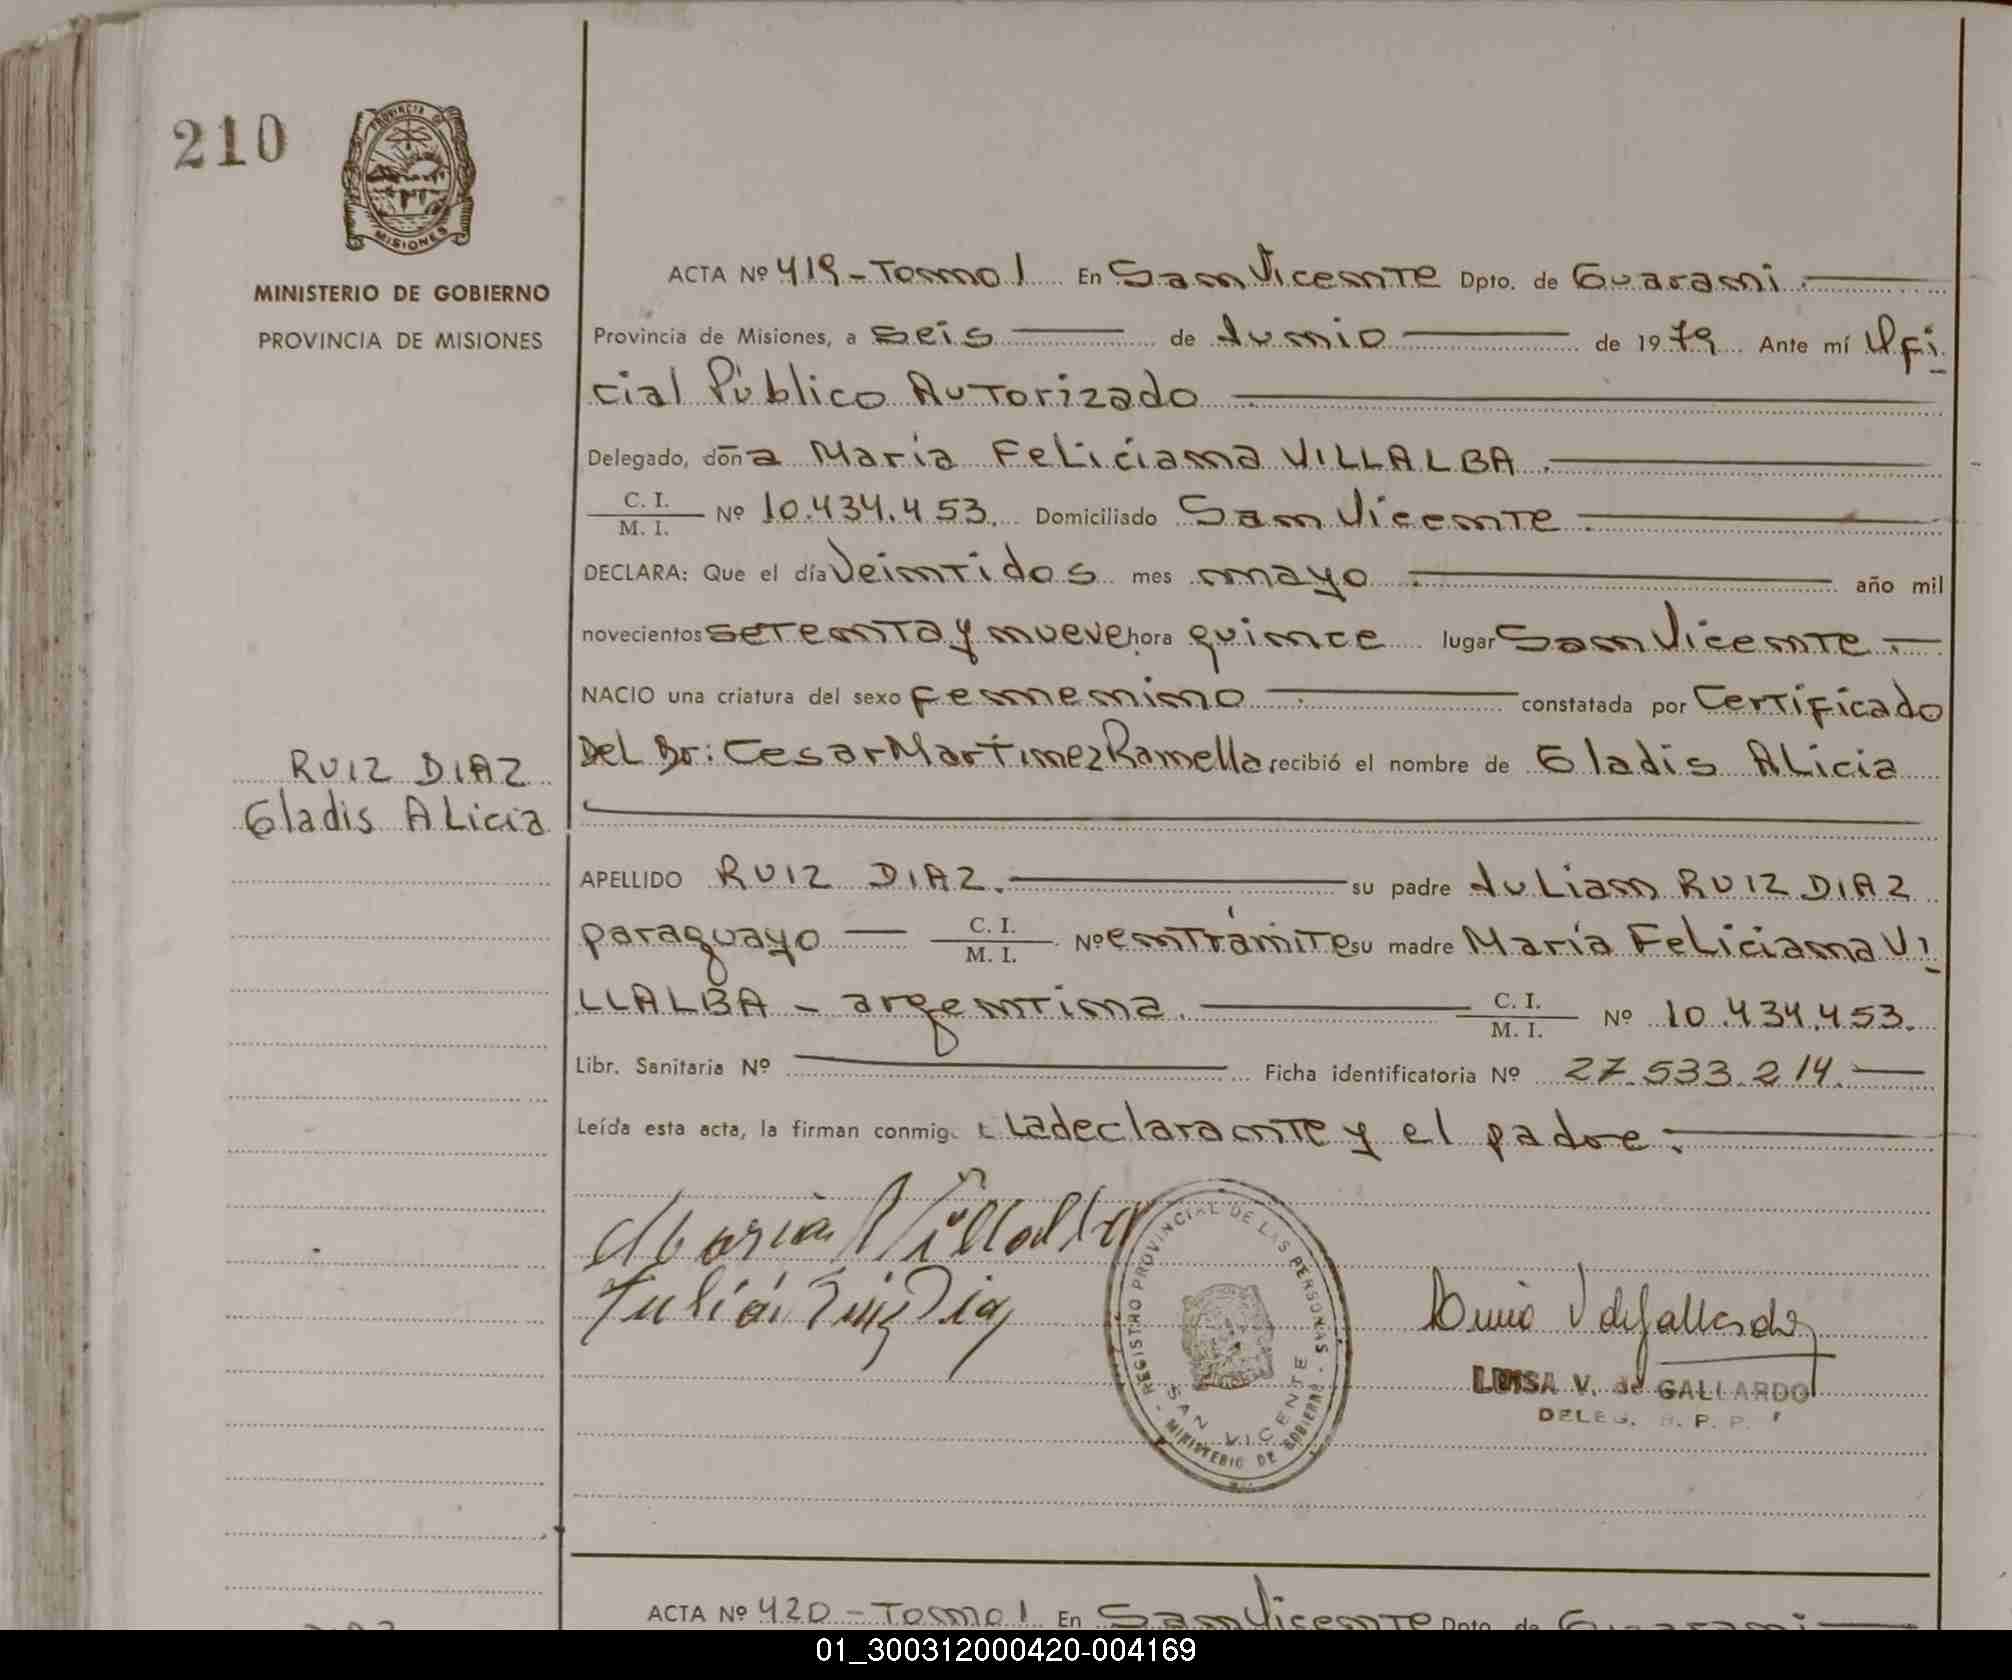 210
PROVINCIA DE
MISIONES
MINISTERIO DE GOBIERNO
PROVINCIA DE MISIONES
RUIZ DIAZ
Gladis ALicia
ACTA Nº 419 - Tomo 1 En San Vicente Dpto. de Guarani
Provincia de Misiones, a seis de Junio de 1979 Ante mí Ofi
cial Público Autorizado
Delegado, doña María Feliciana VILLALBA
C. I.
M. I. Nº 10.434.453. Domiciliado San Vicente
DECLARA: Que el día Veintidos mes mayo año mil
novecientos setenta y nueve hora quince lugar San Vicente
NACIO una criatura del sexo femenino constatada por Certificado
Del Dr: Cesar Martinez Ramella recibió el nombre de Gladis ALicia
APELLIDO RUIZ DIAZ. su padre Julian RUIZ DIAZ
paraguayo C. I. M. I. Nº en trámite su madre María Feliciana VI
LLALBA - argentina. C. I. M. I. Nº 10.434.453.
Libr. Sanitaria Nº Ficha identificatoria Nº 27.533.214.
Leída esta acta, la firman conmig. La declarante y el padre.
Maria Villalba
Julián Ruiz Diaz
REGISTRO PROVINCIAL DE LAS PERSONAS
SAN VICENTE
MINISTERIO DE GOBIERNO
V de Gallardo
LUISA V. de GALLARDO
DELEG. R. P. P.
ACTA Nº 420 - Tomo 1 En San Vicente Dpto. de Guarani
01_300312000420-004169